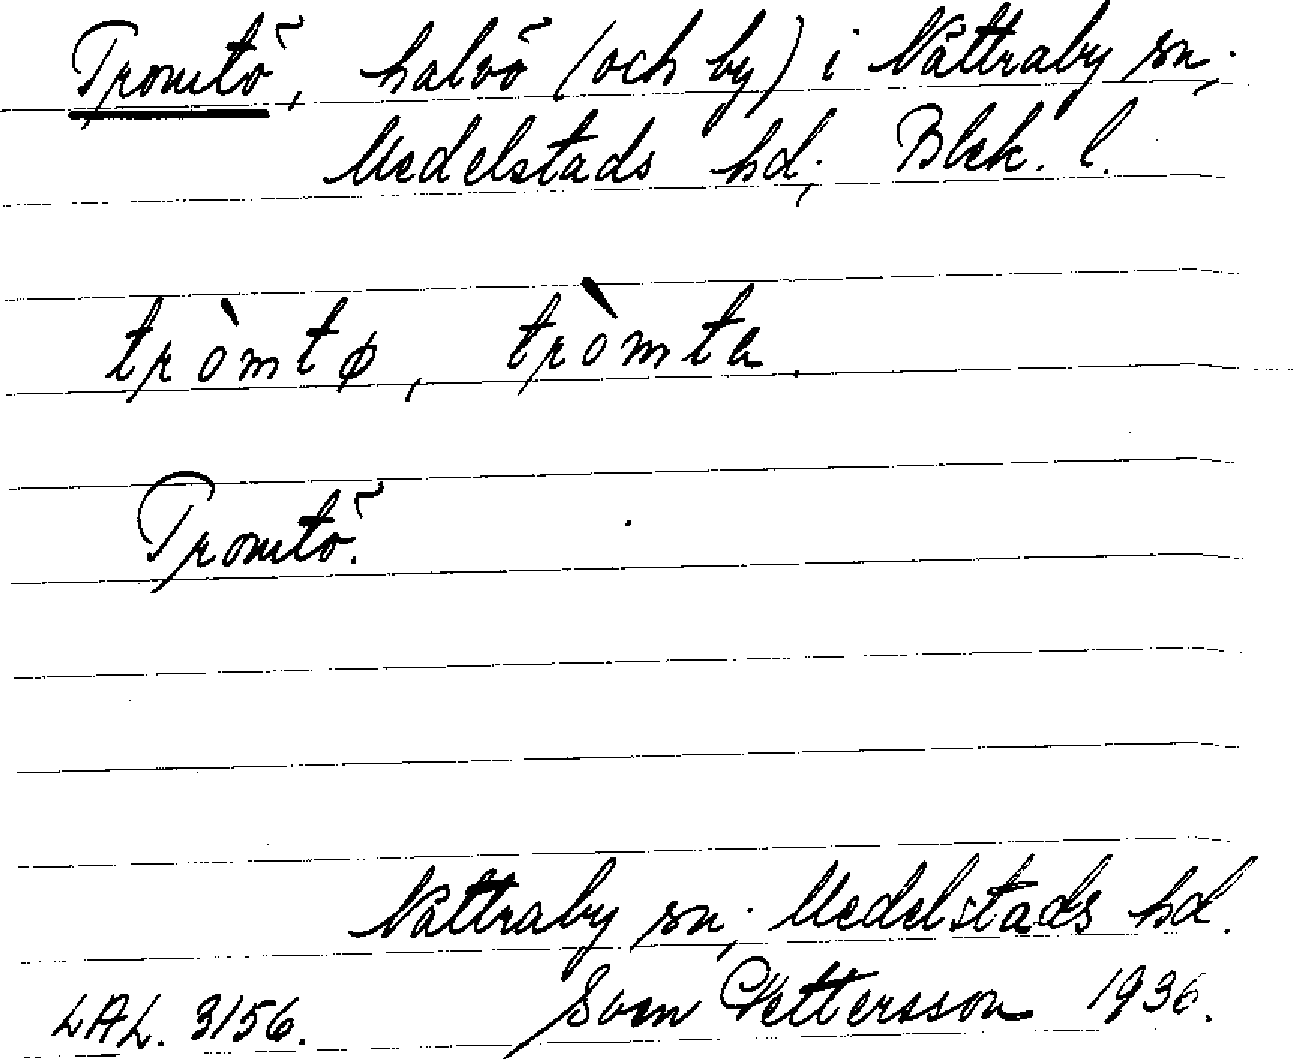 Tromtö, halvö (och by) i Nättraby sn;
Medelstads hd; Blek. l.
tròmtø, tròmta.
Tromtö.
Nättraby sn; Medelstads hd.
LAL. 3156. Sven Pettersson 1936.